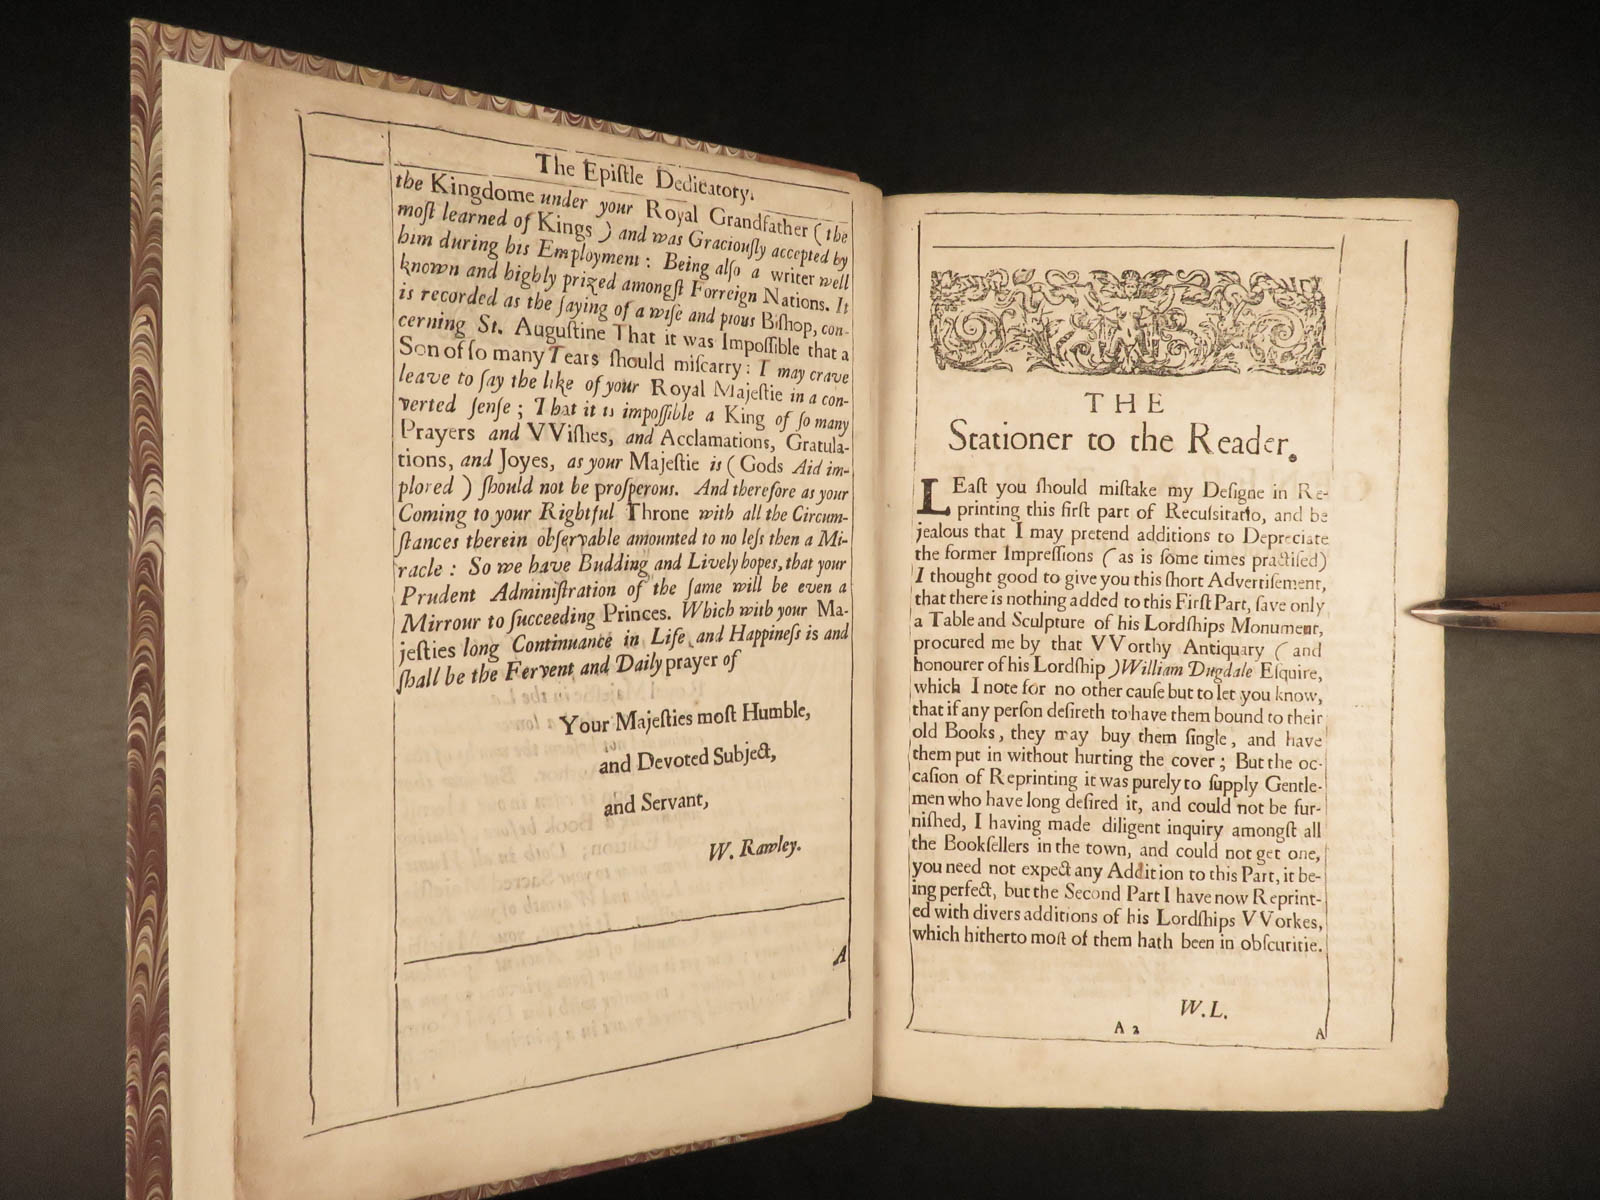 The Epiſtle Dedicatory.
the Kingdome under your Royal Grandfather (the
moſt learned of Kings) and was Graciouſly accepted by
him during his Employment: Being alſo a writer well
known and highly prized amongſt Forreign Nations. It
is recorded as the ſaying of a wiſe and pious Biſhop, con-
cerning St. Auguſtine That it was Impoſſible that a
Son of ſo many Tears ſhould miſcarry: I may crave
leave to ſay the like of your Royal Majeſtie in a con-
verted ſenſe; That it is impoſſible a King of ſo many
Prayers and VViſhes, and Acclamations, Gratula-
tions, and Joyes, as your Majeſtie is (Gods Aid im-
plored) ſhould not be proſperous. And therefore as your
Coming to your Rightful Throne with all the Circum-
ſtances therein obſervable amounted to no leſs then a Mi-
racle: So we have Budding and Lively hopes, that your
Prudent Adminiſtration of the ſame will be even a
Mirrour to ſucceeding Princes. Which with your Ma-
jeſties long Continuance in Life and Happineſs is and
ſhall be the Fervent and Daily prayer of
Your Majeſties moſt Humble,
and Devoted Subject,
and Servant,
W. Rawley.
A
THE
Stationer to the Reader.
LEaſt you ſhould miſtake my Deſigne in Re-
printing this firſt part of Recuſsitatio, and be
jealous that I may pretend additions to Depreciate
the former Impreſſions (as is ſome times practiſed)
I thought good to give you this ſhort Advertiſement,
that there is nothing added to this Firſt Part, ſave only
a Table and Sculpture of his Lordſhips Monument,
procured me by that VVorthy Antiquary (and
honourer of his Lordſhip) William Dugdale Eſquire,
which I note for no other cauſe but to let you know,
that if any perſon deſireth to have them bound to their
old Books, they may buy them ſingle, and have
them put in without hurting the cover; But the oc-
caſion of Reprinting it was purely to ſupply Gentle-
men who have long deſired it, and could not be fur-
niſhed, I having made diligent inquiry amongſt all
the Bookſellers in the town, and could not get one,
you need not expect any Addition to this Part, it be-
ing perfect, but the Second Part I have now Reprint-
ed with divers additions of his Lordſhips VVorkes,
which hitherto moſt of them hath been in obſcuritie.
W.L.
A 2
A